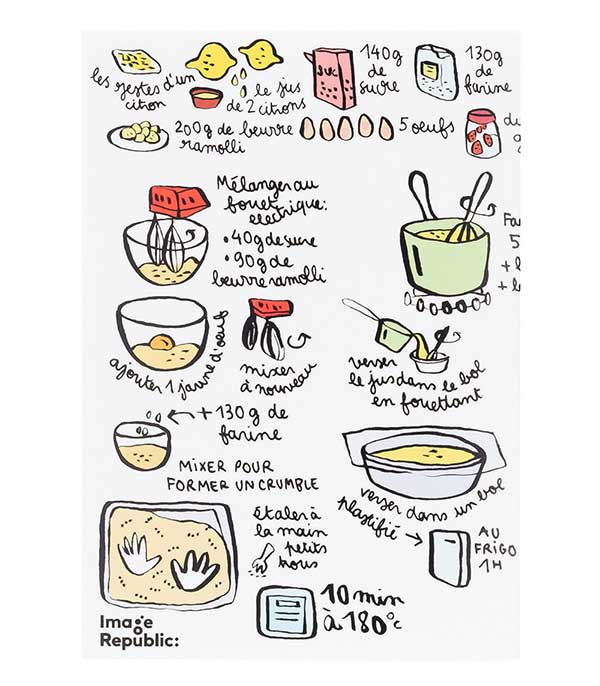 les zestes d'un
citron
le jus
de 2 citrons
SUC
140g
de
sucre
130g
de
farine
200g de beurre
ramolli
5 oeufs
du
Mélanger au
fouet
électrique:
• 40g de sucre
• 90g de
beurre ramolli
Fa
5
+ l
+ l
ajouter 1 jaune d'oeuf
mixer
à nouveau
verser
le jus dans le bol
en fouettant
+ 130g de
farine
MIXER POUR
FORMER UN CRUMBLE
verser dans un bol
plastifié
AU
FRIGO
1H
Étaler à
la main
petits
trous
10 min
à 180°c
Image
Republic: